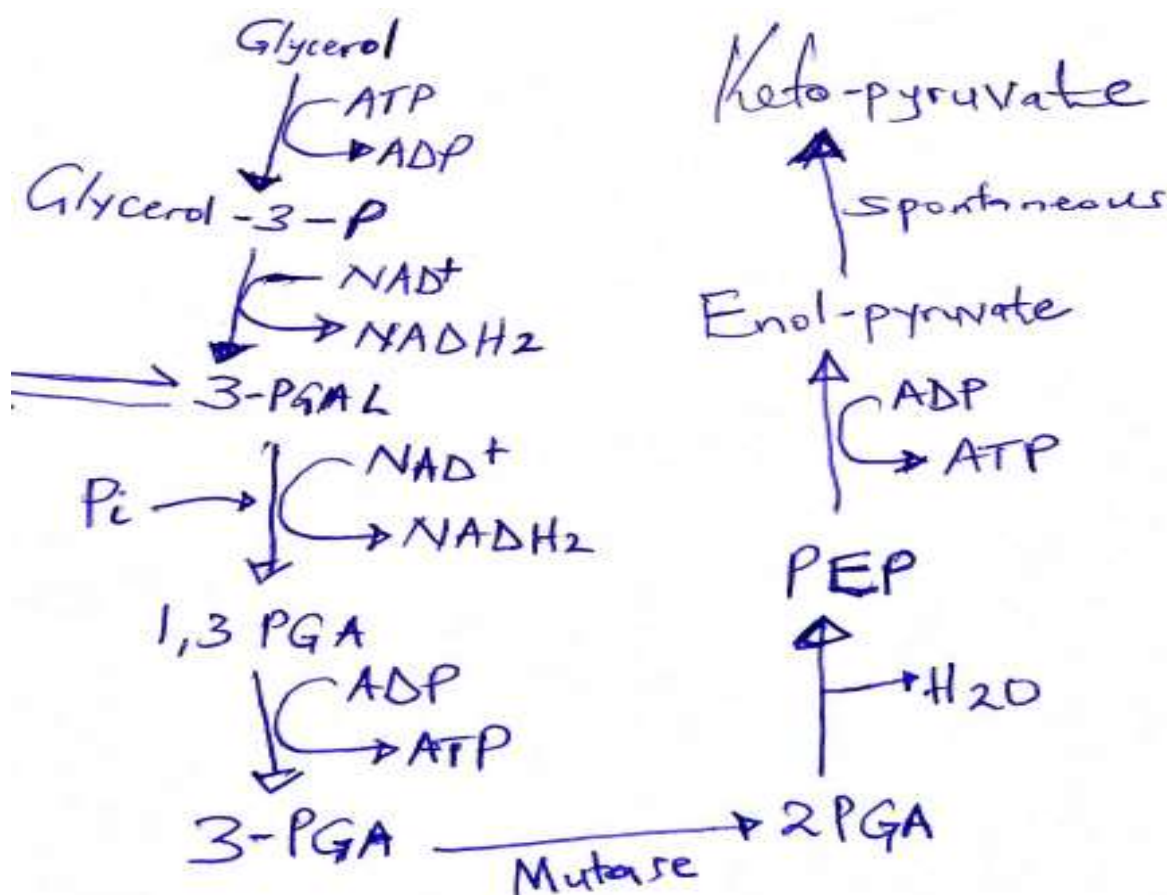 Glycerol
ATP
ADP
Glycerol-3-P
NAD+
NADH2
3-PGAL
Pi
NAD+
NADH2
1,3 PGA
ADP
ATP
3-PGA
Mutase
2PGA
H2O
PEP
ADP
ATP
Enol-pyruvate
spontaneous
Keto-pyruvate